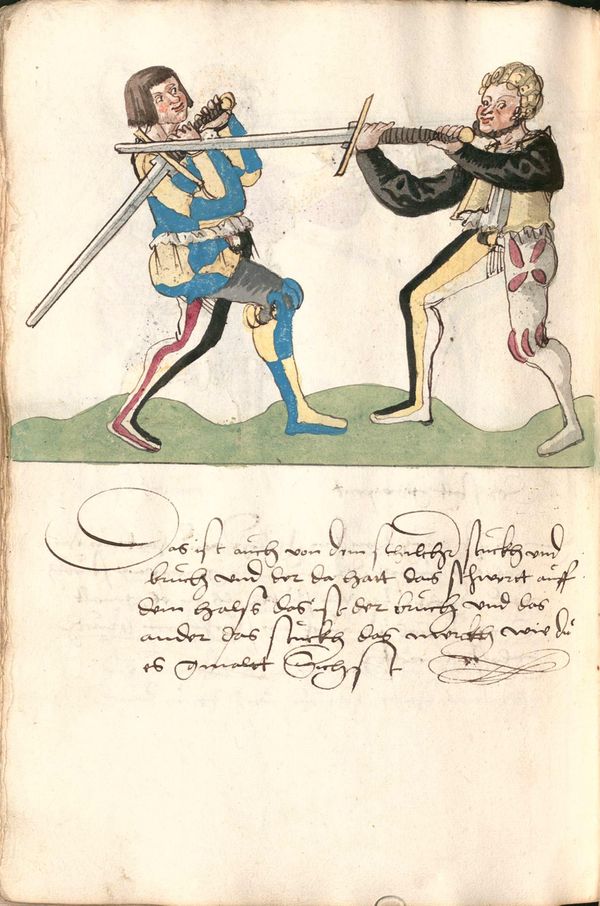 Das ist auch von dem schilcher stuckh und
bruch und der da hatt das schwertt auff
dem halss das ist der bruch und das
ander das stuckh das merckh wie du
es gmalett Sichst